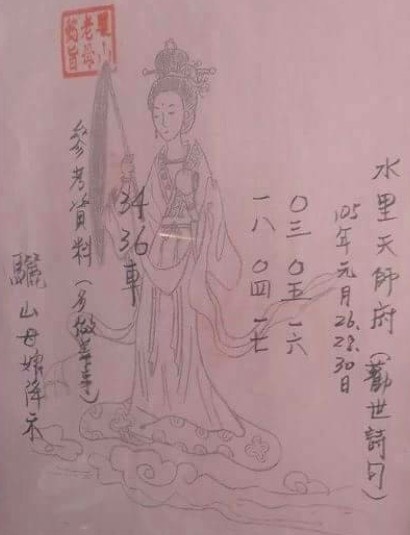 水里天師府(勸世詩句)
105年元月26.28.30日
〇三 〇五 一六
一八 〇四 一七
34
36 車
參考資料(多做善事)
驪山母娘降示